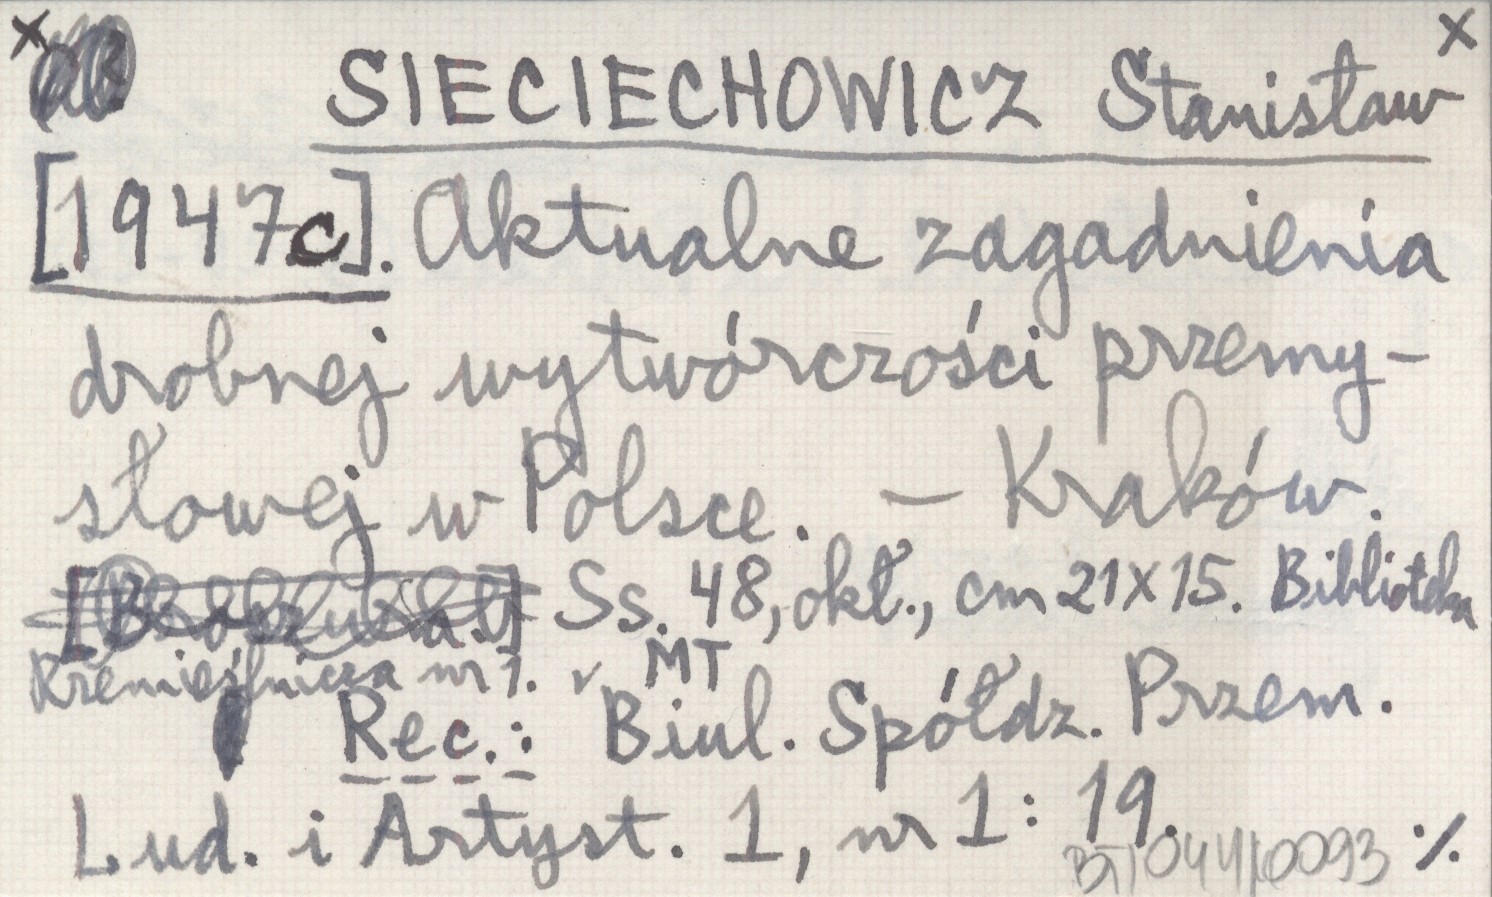 x SIECIECHOWICZ Stanisław x
[1947c]. Aktualne zagadnienia
drobnej wytwórczości przemy-
słowej w Polsce. – Kraków.
[Broszurka.] Ss. 48, okł., cm 21x15. Biblioteka
Rzemieślnicza nr 1. v MT
Rec.: Biul. Spółdz. Przem.
Lud. i Artyst. 1, nr 1: 19.
BT/044/0093 ./.